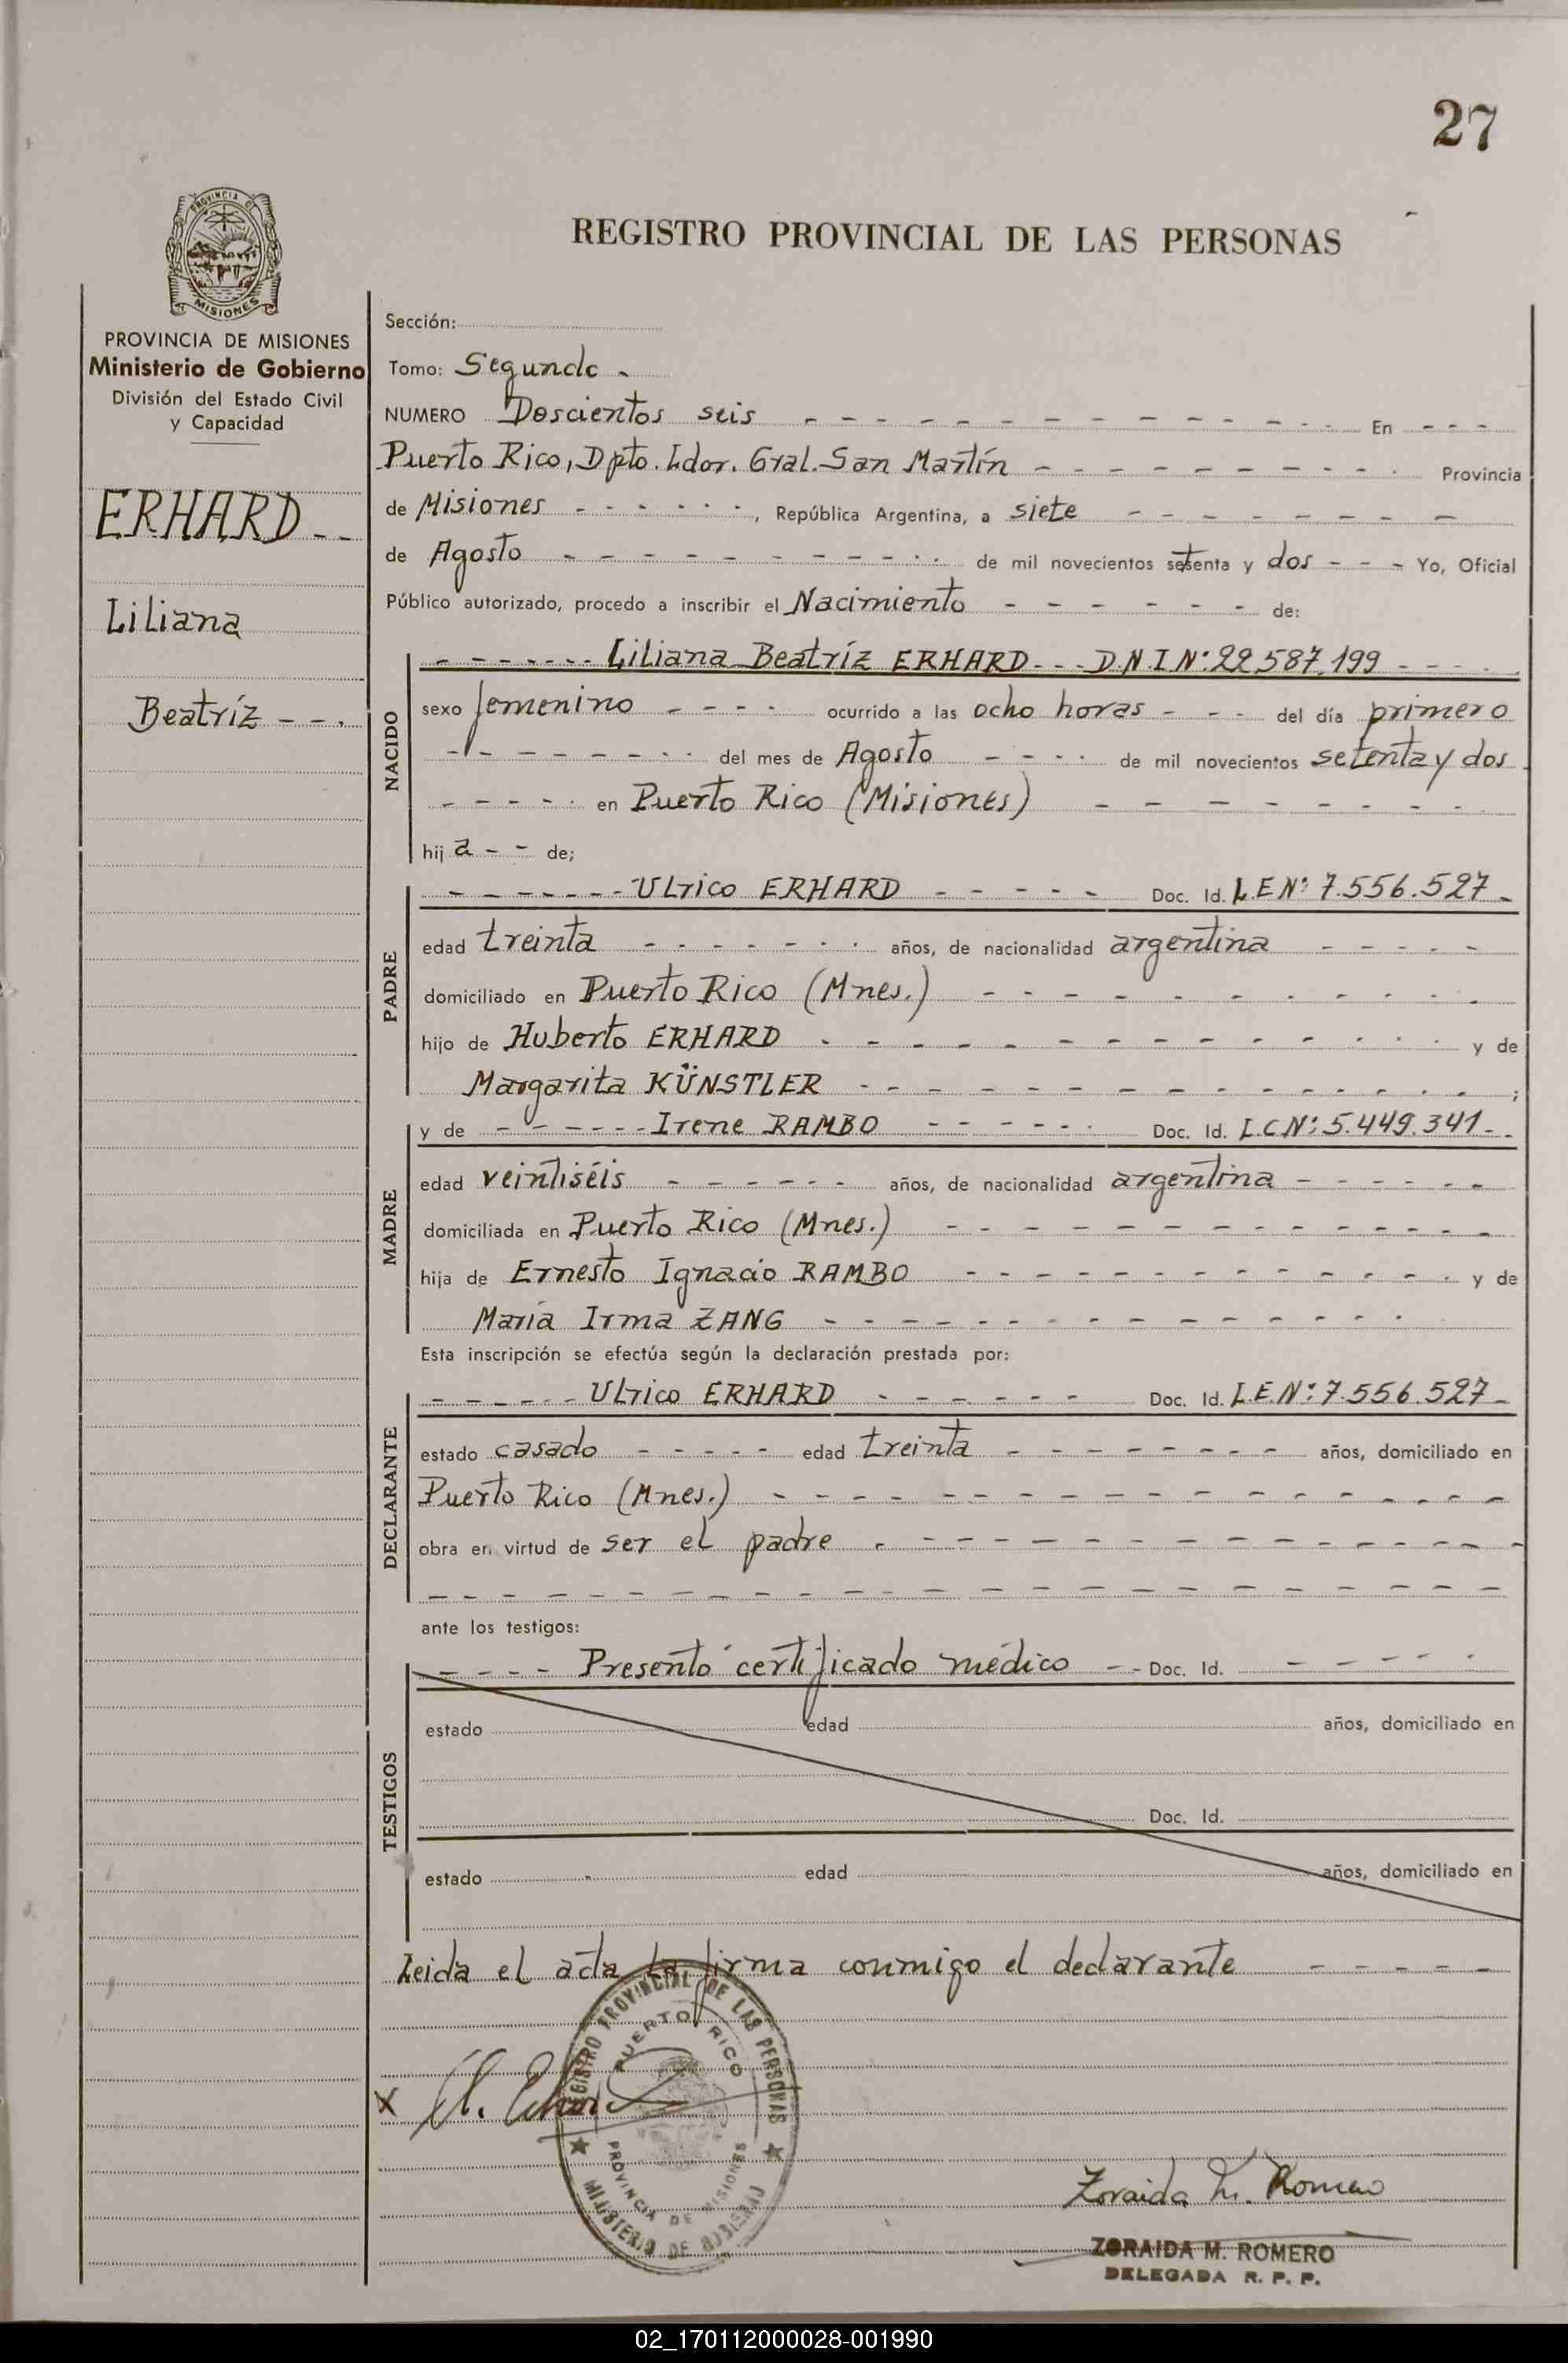 27
PROVINCIA DE
MISIONES
REGISTRO PROVINCIAL DE LAS PERSONAS
PROVINCIA DE MISIONES
Ministerio de Gobierno
División del Estado Civil
y Capacidad
ERHARD - -
Liliana
Beatríz - - .
Sección:
Tomo: Segundo -
NUMERO Doscientos seis - - - En - - -
Puerto Rico, Dpto. Ldor. Gral. San Martín - - - Provincia
de Misiones - - - , República Argentina, a siete - - -
de Agosto - - - de mil novecientos setenta y dos - - - Yo, Oficial
Público autorizado, procedo a inscribir el Nacimiento - - - de:
NACIDO
- - - Liliana Beatríz ERHARD - - - D.N.I Nº: 22.587.199 - - -
sexo femenino - - - ocurrido a las ocho horas - - - del día primero
- - - del mes de Agosto - - - de mil novecientos setenta y dos
- - - en Puerto Rico (Misiones) - - -
hij a - - de;
PADRE
- - - Ulrico ERHARD - - - Doc. Id. L.E Nº: 7.556.527 -
edad treinta - - - años, de nacionalidad argentina - - -
domiciliado en Puerto Rico (Mnes.) - - -
hijo de Huberto ERHARD - - - y de
Margarita KÜNSTLER - - - ;
MADRE
y de - - - Irene RAMBO - - - Doc. Id. L.C Nº: 5.449.341 - -
edad veintiséis - - - años, de nacionalidad argentina - - -
domiciliada en Puerto Rico (Mnes.) - - -
hija de Ernesto Ignacio RAMBO - - - y de
María Irma ZANG - - -
Esta inscripción se efectúa según la declaración prestada por:
DECLARANTE
- - - Ulrico ERHARD - - - Doc. Id. L.E. Nº: 7.556.527 -
estado casado - - - edad treinta - - - años, domiciliado en
Puerto Rico (Mnes.) - - -
obra en virtud de ser el padre . - - -
ante los testigos:
TESTIGOS
- - - Presentó certificado médico - - Doc. Id. - - -
estado edad años, domiciliado en
Doc. Id.
estado edad años, domiciliado en
Leida el acta la firma conmigo el declarante - - -
REGISTRO PROVINCIAL DE LAS PERSONAS
PUERTO RICO
PROVINCIA DE MISIONES
MINISTERIO DE GOBIERNO
x
Zoraida M. Romero
ZORAIDA M. ROMERO
DELEGADA R. P. P.
02_170112000028-001990